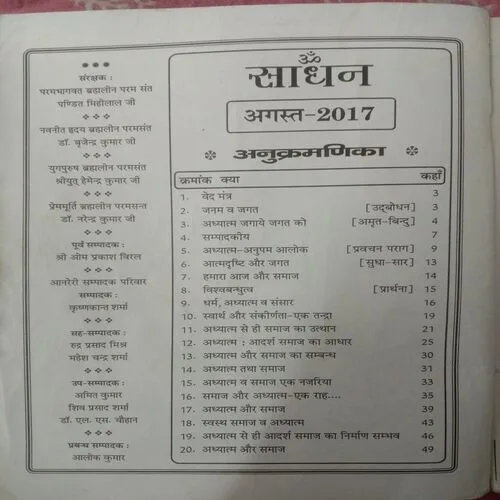 संरक्षक :
परमभागवत ब्रह्मलीन परम संत
पण्डित मिहीलाल जी
नवनीत हृदय ब्रह्मलीन परमसंत
डॉ. बृजेन्द्र कुमार जी
युगपुरुष ब्रह्मलीन परमसंत
श्रीयुत् हेमेन्द्र कुमार जी
प्रेममूर्ति ब्रह्मलीन परमसन्त
डॉ. नरेन्द्र कुमार जी
पूर्व सम्पादक :
श्री ओम प्रकाश विरल
आनरेरी सम्पादक परिवार
सम्पादक :
कृष्णकान्त शर्मा
सह-सम्पादक :
रुद्र प्रसाद मिश्र
महेश चन्द्र शर्मा
उप-सम्पादक :
अमित कुमार
शिव प्रसाद शर्मा
डॉ. एल. एस. चौहान
प्रबन्ध सम्पादक :
आलोक कुमार
ॐ
साधन
अगस्त-2017
अनुक्रमणिका
क्रमांक क्या कहाँ
1. वेद मंत्र 3
2. जनम व जगत [उद्बोधन] 3
3. अध्यात्म जगाये जगत को [अमृत-बिन्दु] 4
4. सम्पादकीय 7
5. अध्यात्म-अनुपम आलोक [प्रवचन पराग] 9
6. आत्मदृष्टि और जगत [सुधा-सार] 13
7. हमारा आज और समाज 14
8. विश्वबन्धुत्व [प्रार्थना] 15
9. धर्म, अध्यात्म व संसार 16
10. स्वार्थ और संकीर्णता-एक तन्द्रा 19
11. अध्यात्म से ही समाज का उत्थान 21
12. अध्यात्म : आदर्श समाज का आधार 25
13. अध्यात्म और समाज का सम्बन्ध 30
14. अध्यात्म तथा समाज 31
15. अध्यात्म व समाज एक नजरिया 33
16. समाज और अध्यात्म-एक राह.... 35
17. अध्यात्म और समाज 39
18. स्वस्थ समाज व अध्यात्म 43
19. अध्यात्म से ही आदर्श समाज का निर्माण सम्भव 46
20. अध्यात्म और समाज 49